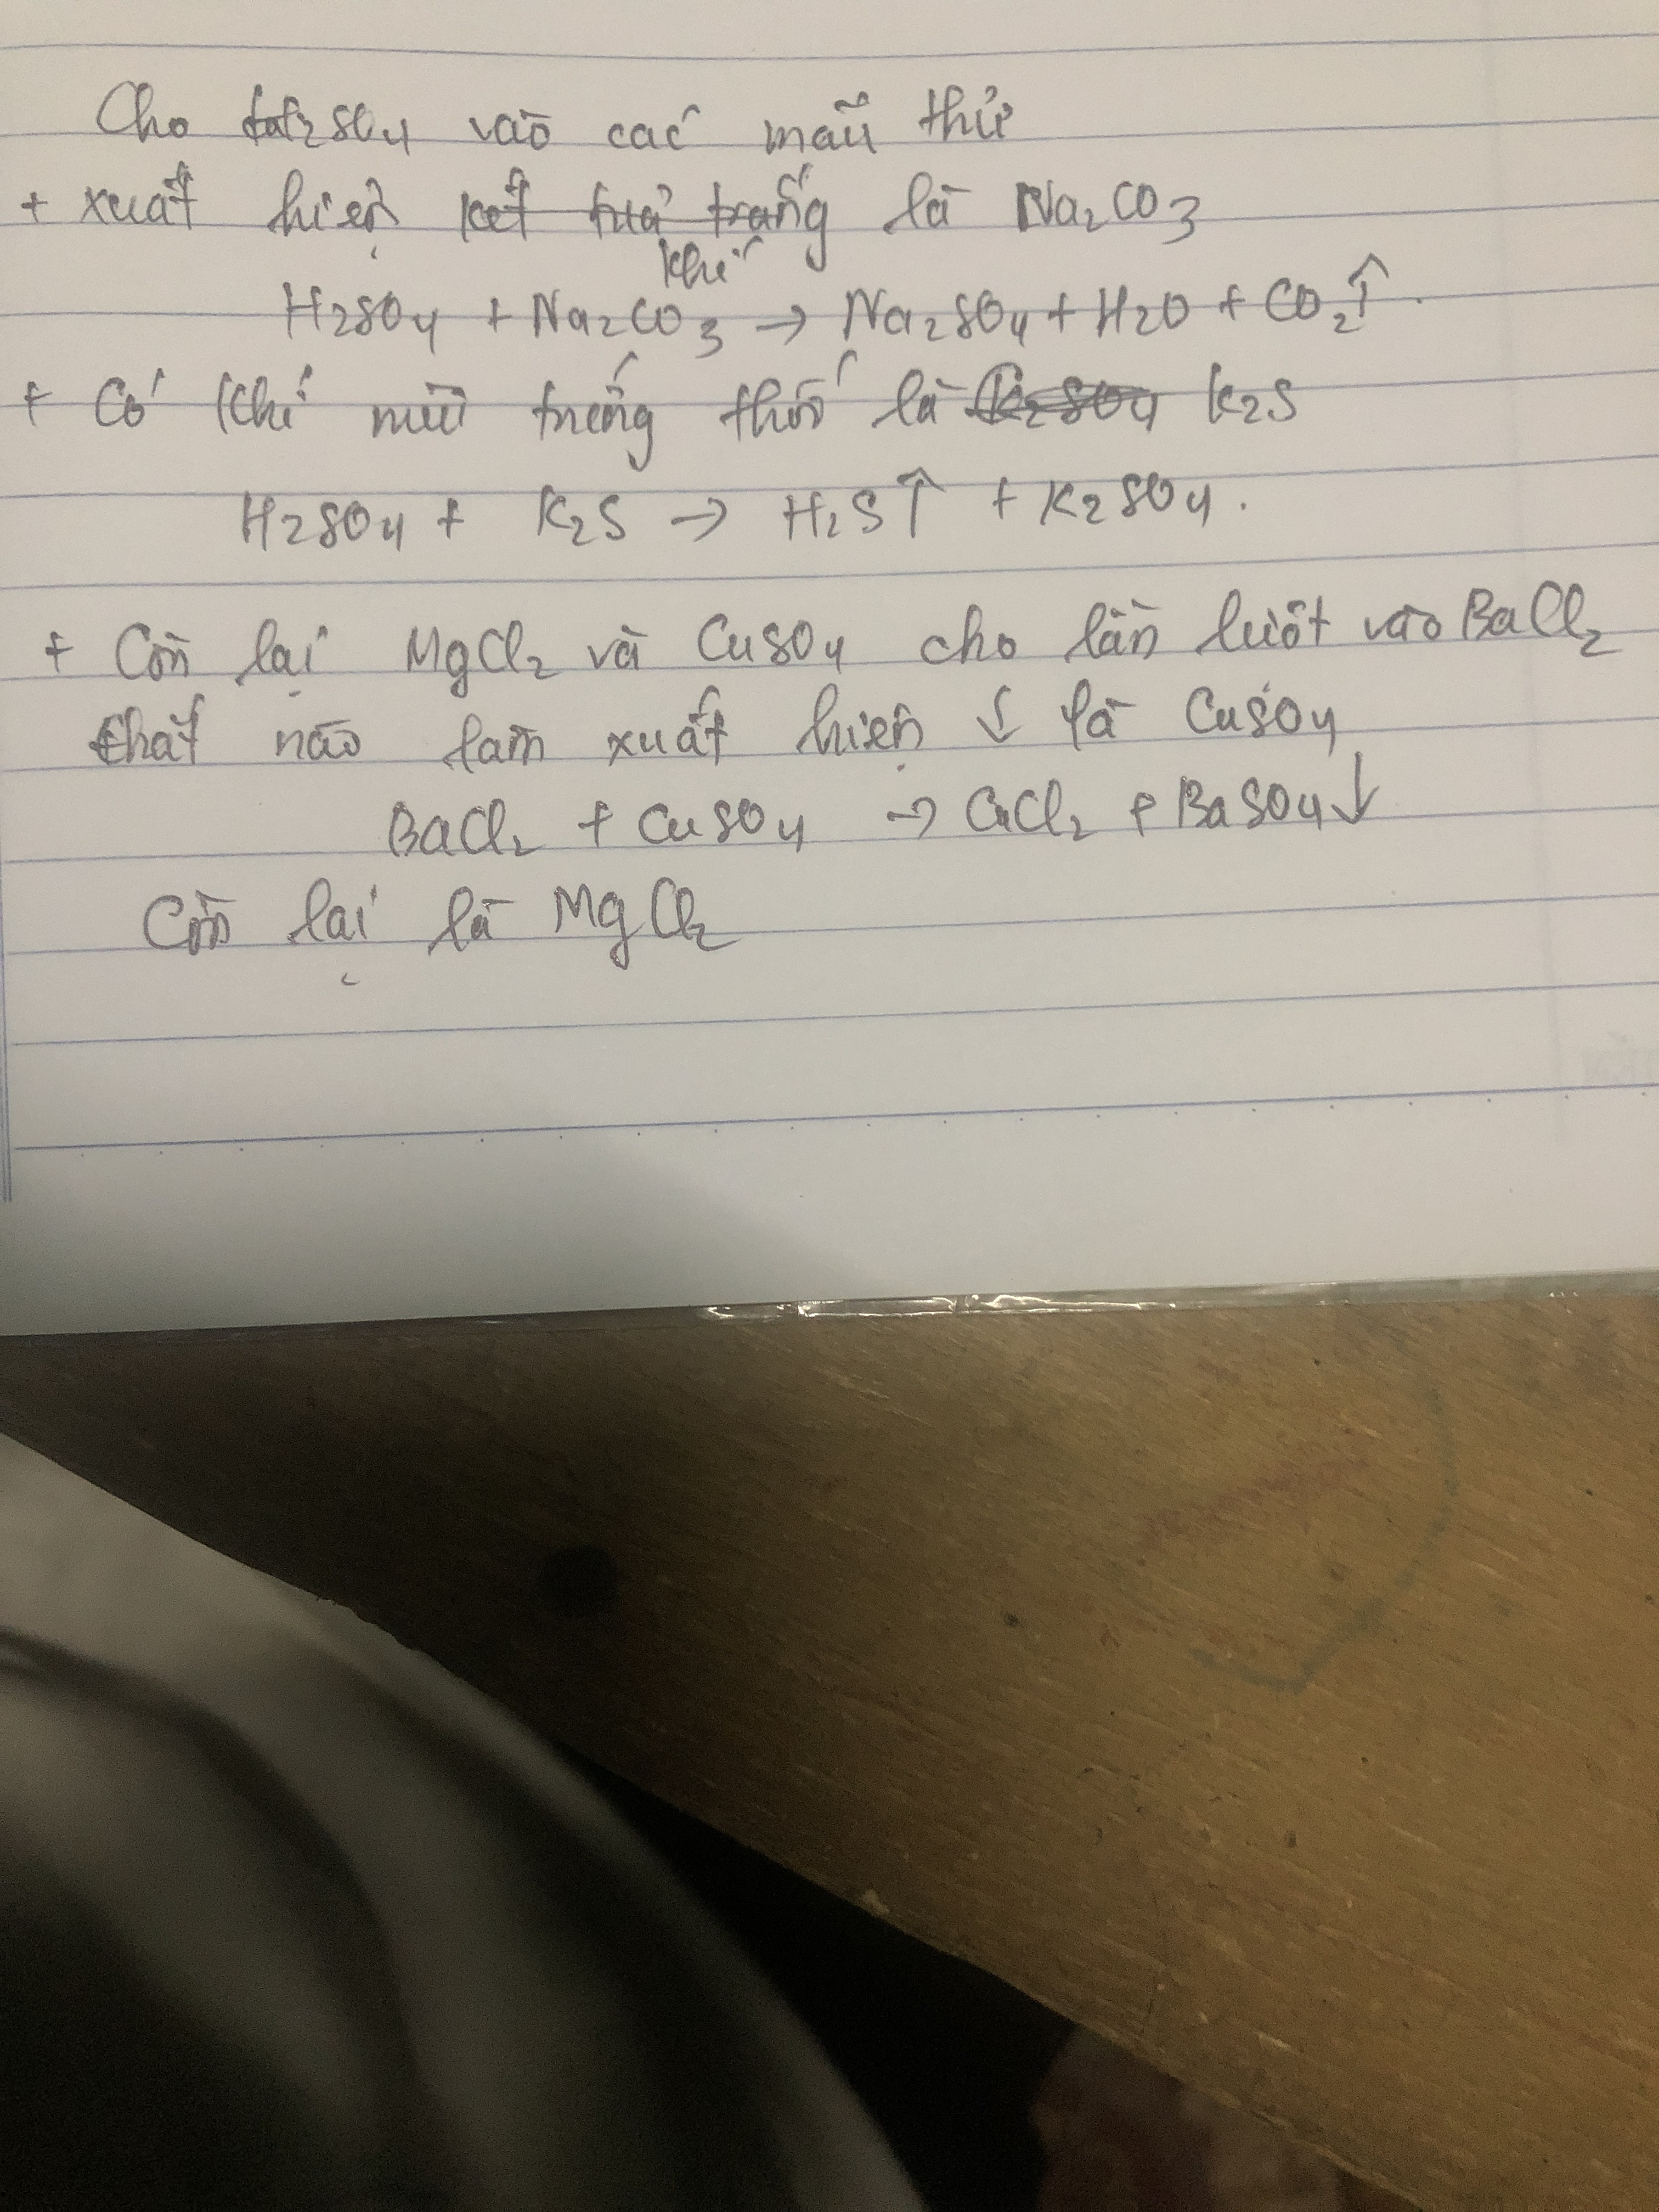 Cho H2SO4 vào các mẫu thử
+ xuất hiện kết tủa trắng là Na2CO3
khí
H2SO4 + Na2CO3 → Na2SO4 + H2O + CO2↑.
+ Có khí mùi trứng thối là K2SO4 K2S
H2SO4 + K2S → H2S↑ + K2SO4.
+ Còn lại MgCl2 và CuSO4 cho lần lượt vào BaCl2
chất nào làm xuất hiện ↓ là CuSO4
BaCl2 + CuSO4 → CuCl2 + BaSO4↓
Còn lại là MgCl2